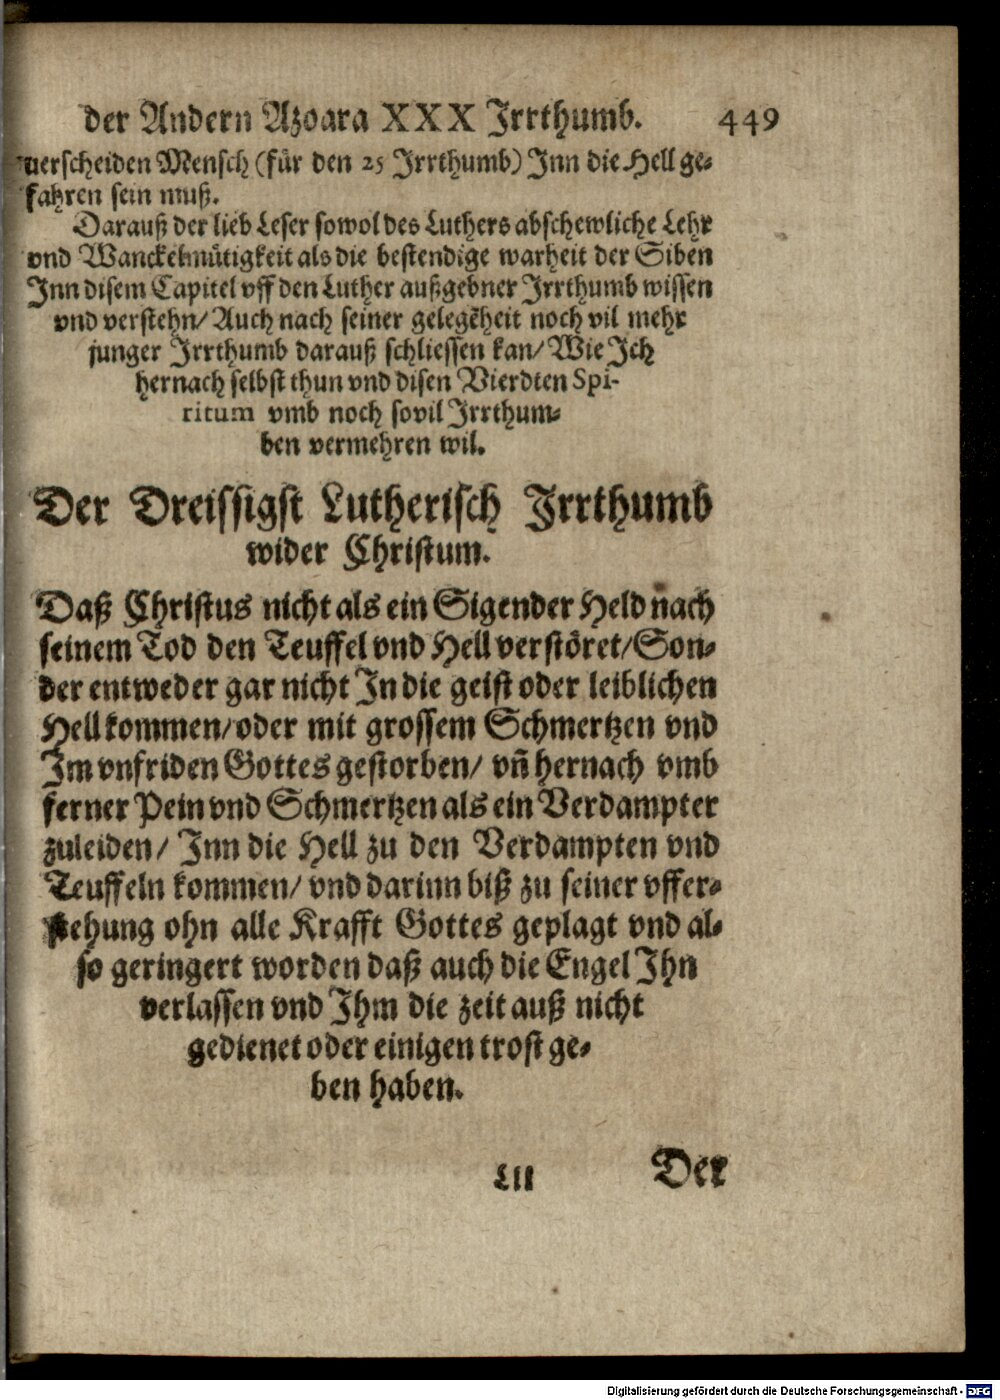 der Andern Azoara XXX Irrthumb. 449
verscheiden Mensch (für den 25 Irrthumb) Inn die Hell ge-
fahren sein muß.
Darauß der lieb Leser sowol des Luthers abschewliche Lehr
vnd Wanckelmütigkeit als die bestendige warheit der Siben
Inn disem Capitel vff den Luther außgebner Irrthumb wissen
vnd verstehn/ Auch nach seiner gelegēheit noch vil mehr
junger Irrthumb darauß schliessen kan/ Wie Ich
hernach selbst thun vnd disen Vierdten Spi-
ritum vmb noch sovil Irrthum-
ben vermehren wil.
Der Dreissigst Lutherisch Irrthumb
wider Christum.
Daß Christus nicht als ein Sigender Held nach
seinem Tod den Teuffel vnd Hell verstöret/ Son-
der entweder gar nicht In die geist oder leiblichen
Hell kommen/ oder mit grossem Schmertzen vnd
Im vnfriden Gottes gestorben/ vñ hernach vmb
ferner Pein vnd Schmertzen als ein Verdampter
zuleiden/ Inn die Hell zu den Verdampten vnd
Teuffeln kommen/ vnd darinn biß zu seiner vffer-
stehung ohn alle Krafft Gottes geplagt vnd al-
so geringert worden daß auch die Engel Ihn
verlassen vnd Ihm die zeit auß nicht
gedienet oder einigen trost ge-
ben haben.
Lll Der
Digitalisierung gefördert durch die Deutsche Forschungsgemeinschaft - DFG